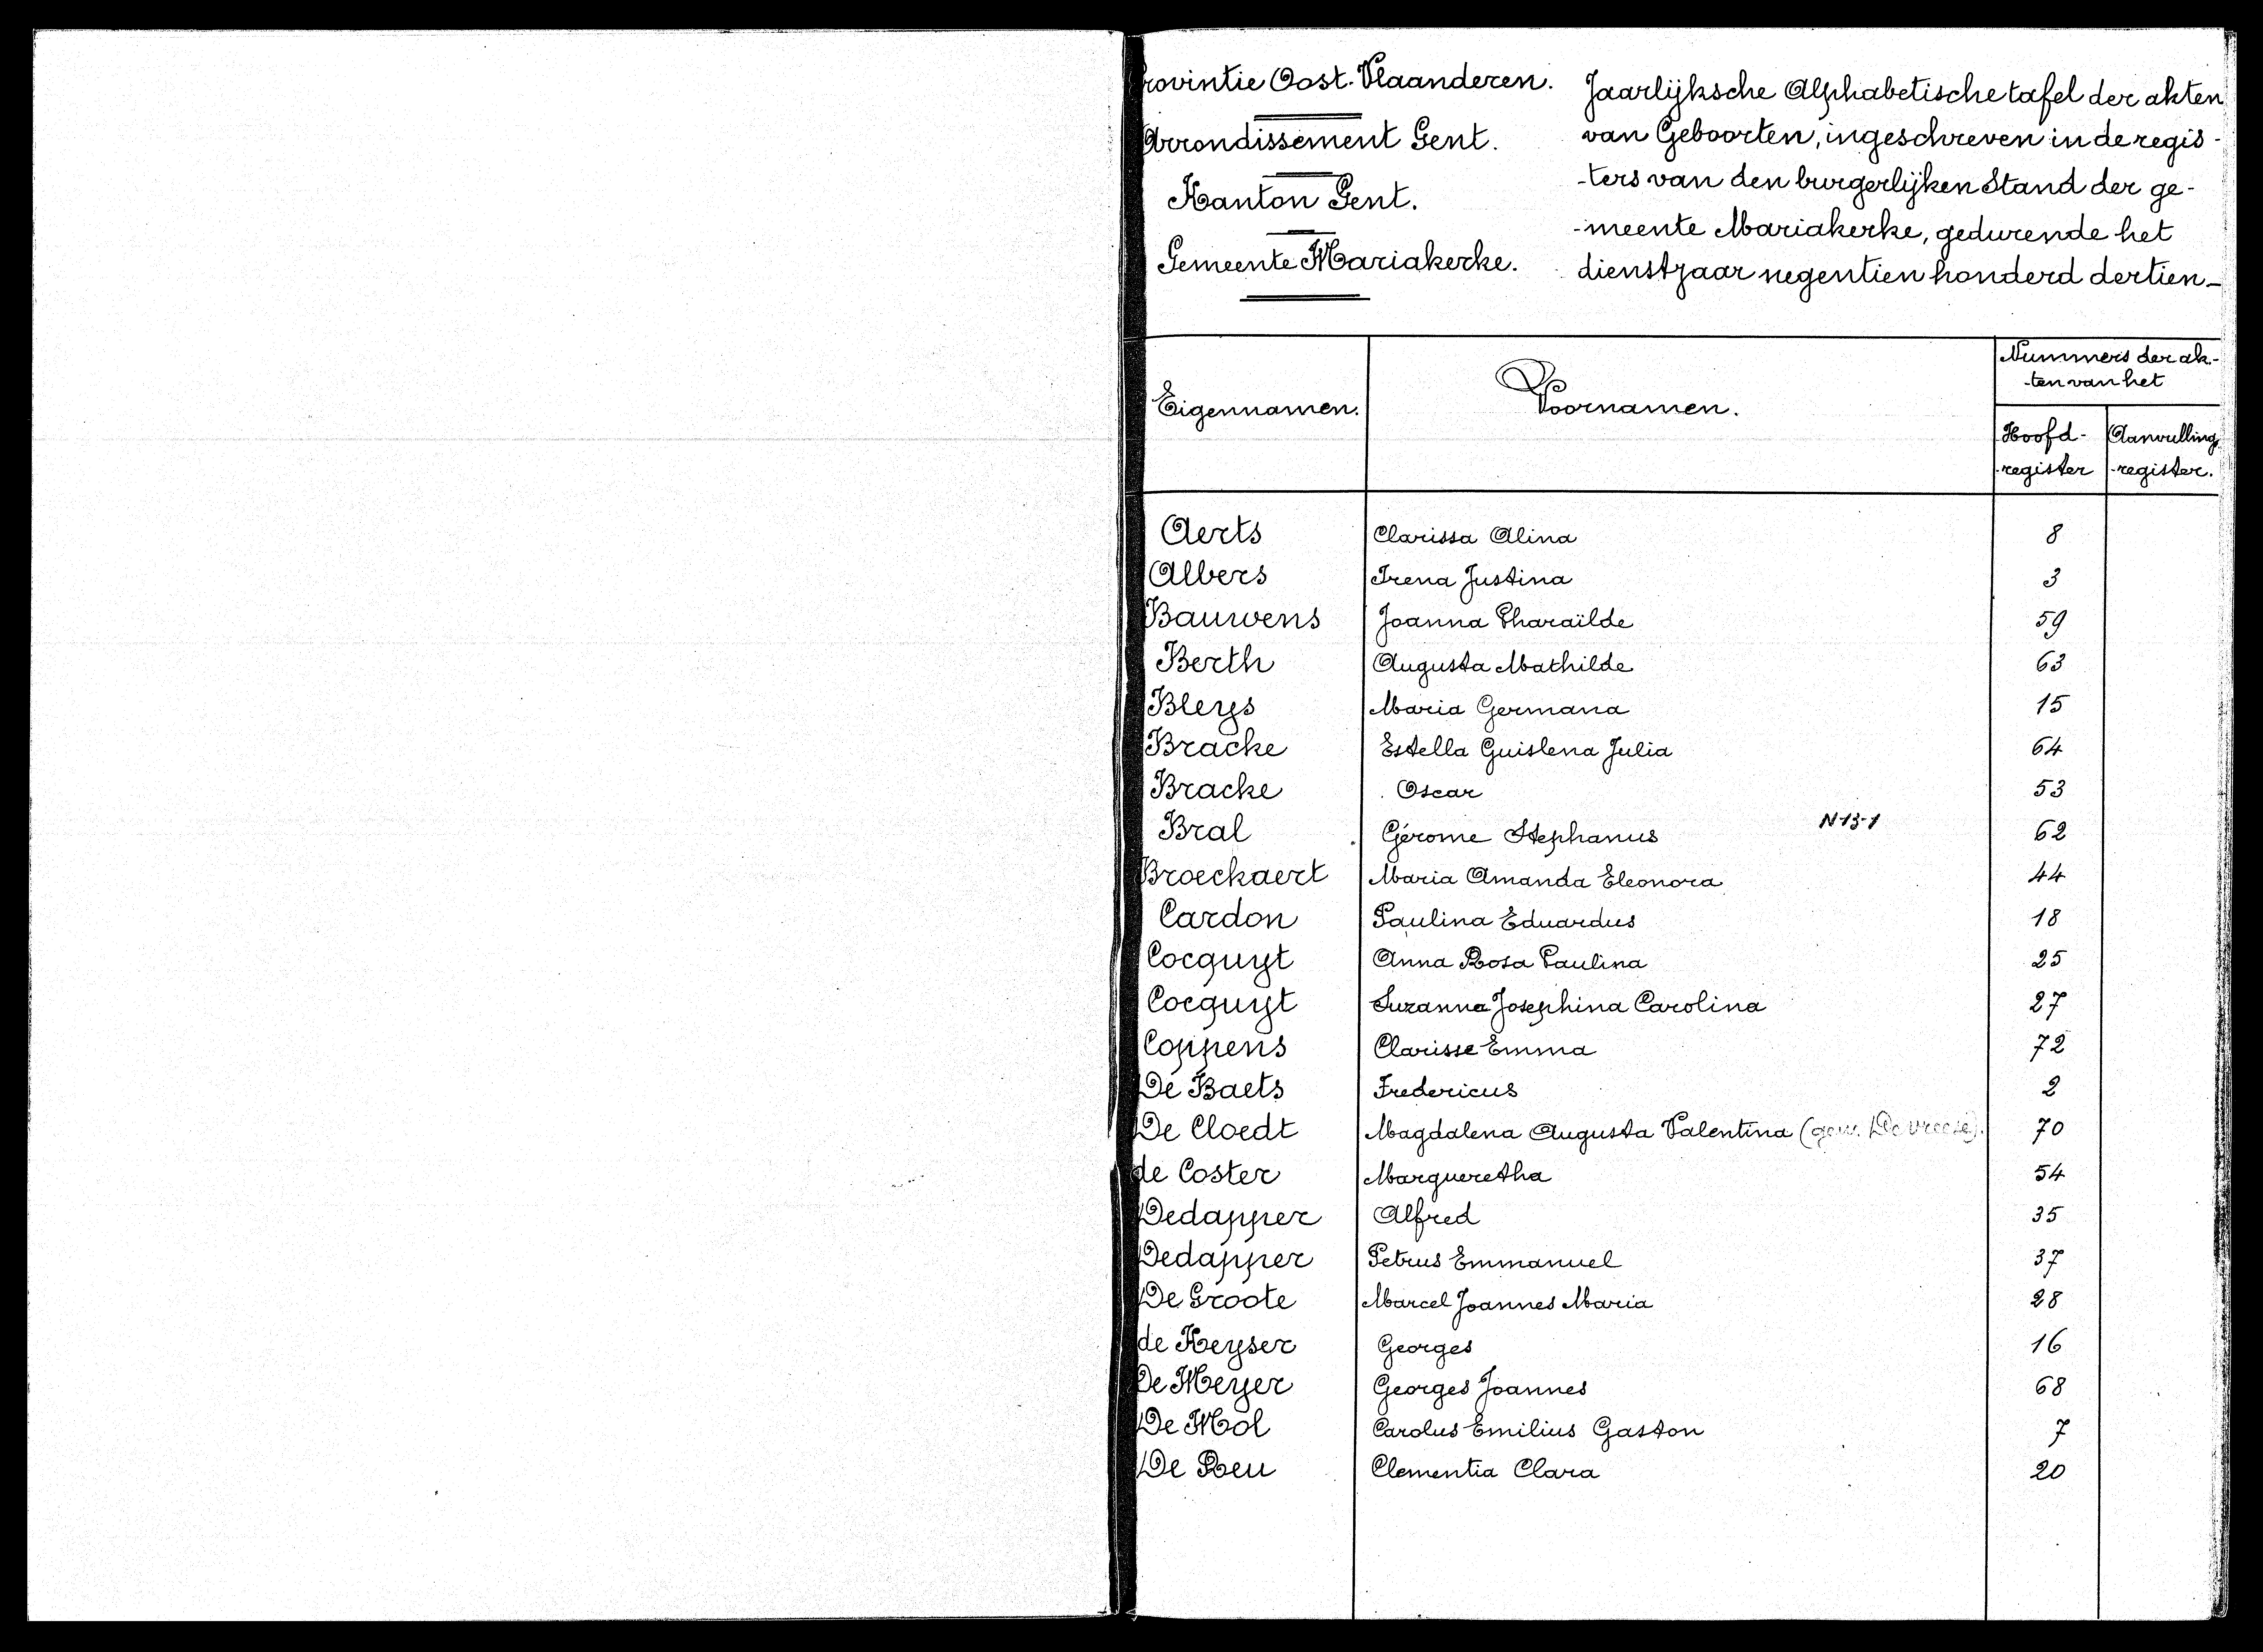 Provintie Oost-Vlaanderen.
Arrondissement Gent.
Kanton Gent.
Gemeente Mariakerke.
Jaarlijksche Alphabetische tafel der akten
van Geboorten, ingeschreven in de regis-
-ters van den burgerlijken Stand der ge-
-meente Mariakerke, gedurende het
dienstjaar negentien honderd dertien_
Eigennamen. Voornamen. Nummers der ak-
-ten van het
Hoofd- Aanvulling
-register -register.
Aerts Clarissa Alina 8
Albers Irena Justina 3
Bauwens Joanna Pharaïlde 59
Berth Augusta Mathilde 63
Bleys Maria Germana 15
Bracke Estella Guislena Julia 64
Bracke Oscar 53
Bral Gérome Stephanus N-13-1 62
Broeckaert Maria Amanda Eleonora 44
Cardon Paulina Eduardus 18
Cocquyt Anna Rosa Paulina 25
Cocquyt Suzanna Josephina Carolina 27
Coppens Clarisse Emma 72
De Baets Fredericus 2
De Cloedt Magdalena Augusta Valentina (gew. De vreese). 70
de Coster Margueretha 54
Dedapper Alfred 35
Dedapper Petrus Emmanuel 37
De Groote Marcel Joannes Maria 28
de Keyser Georges 16
De Meyer Georges Joannes 68
De Mol Carolus Emilius Gaston 7
De Reu Clementia Clara 20